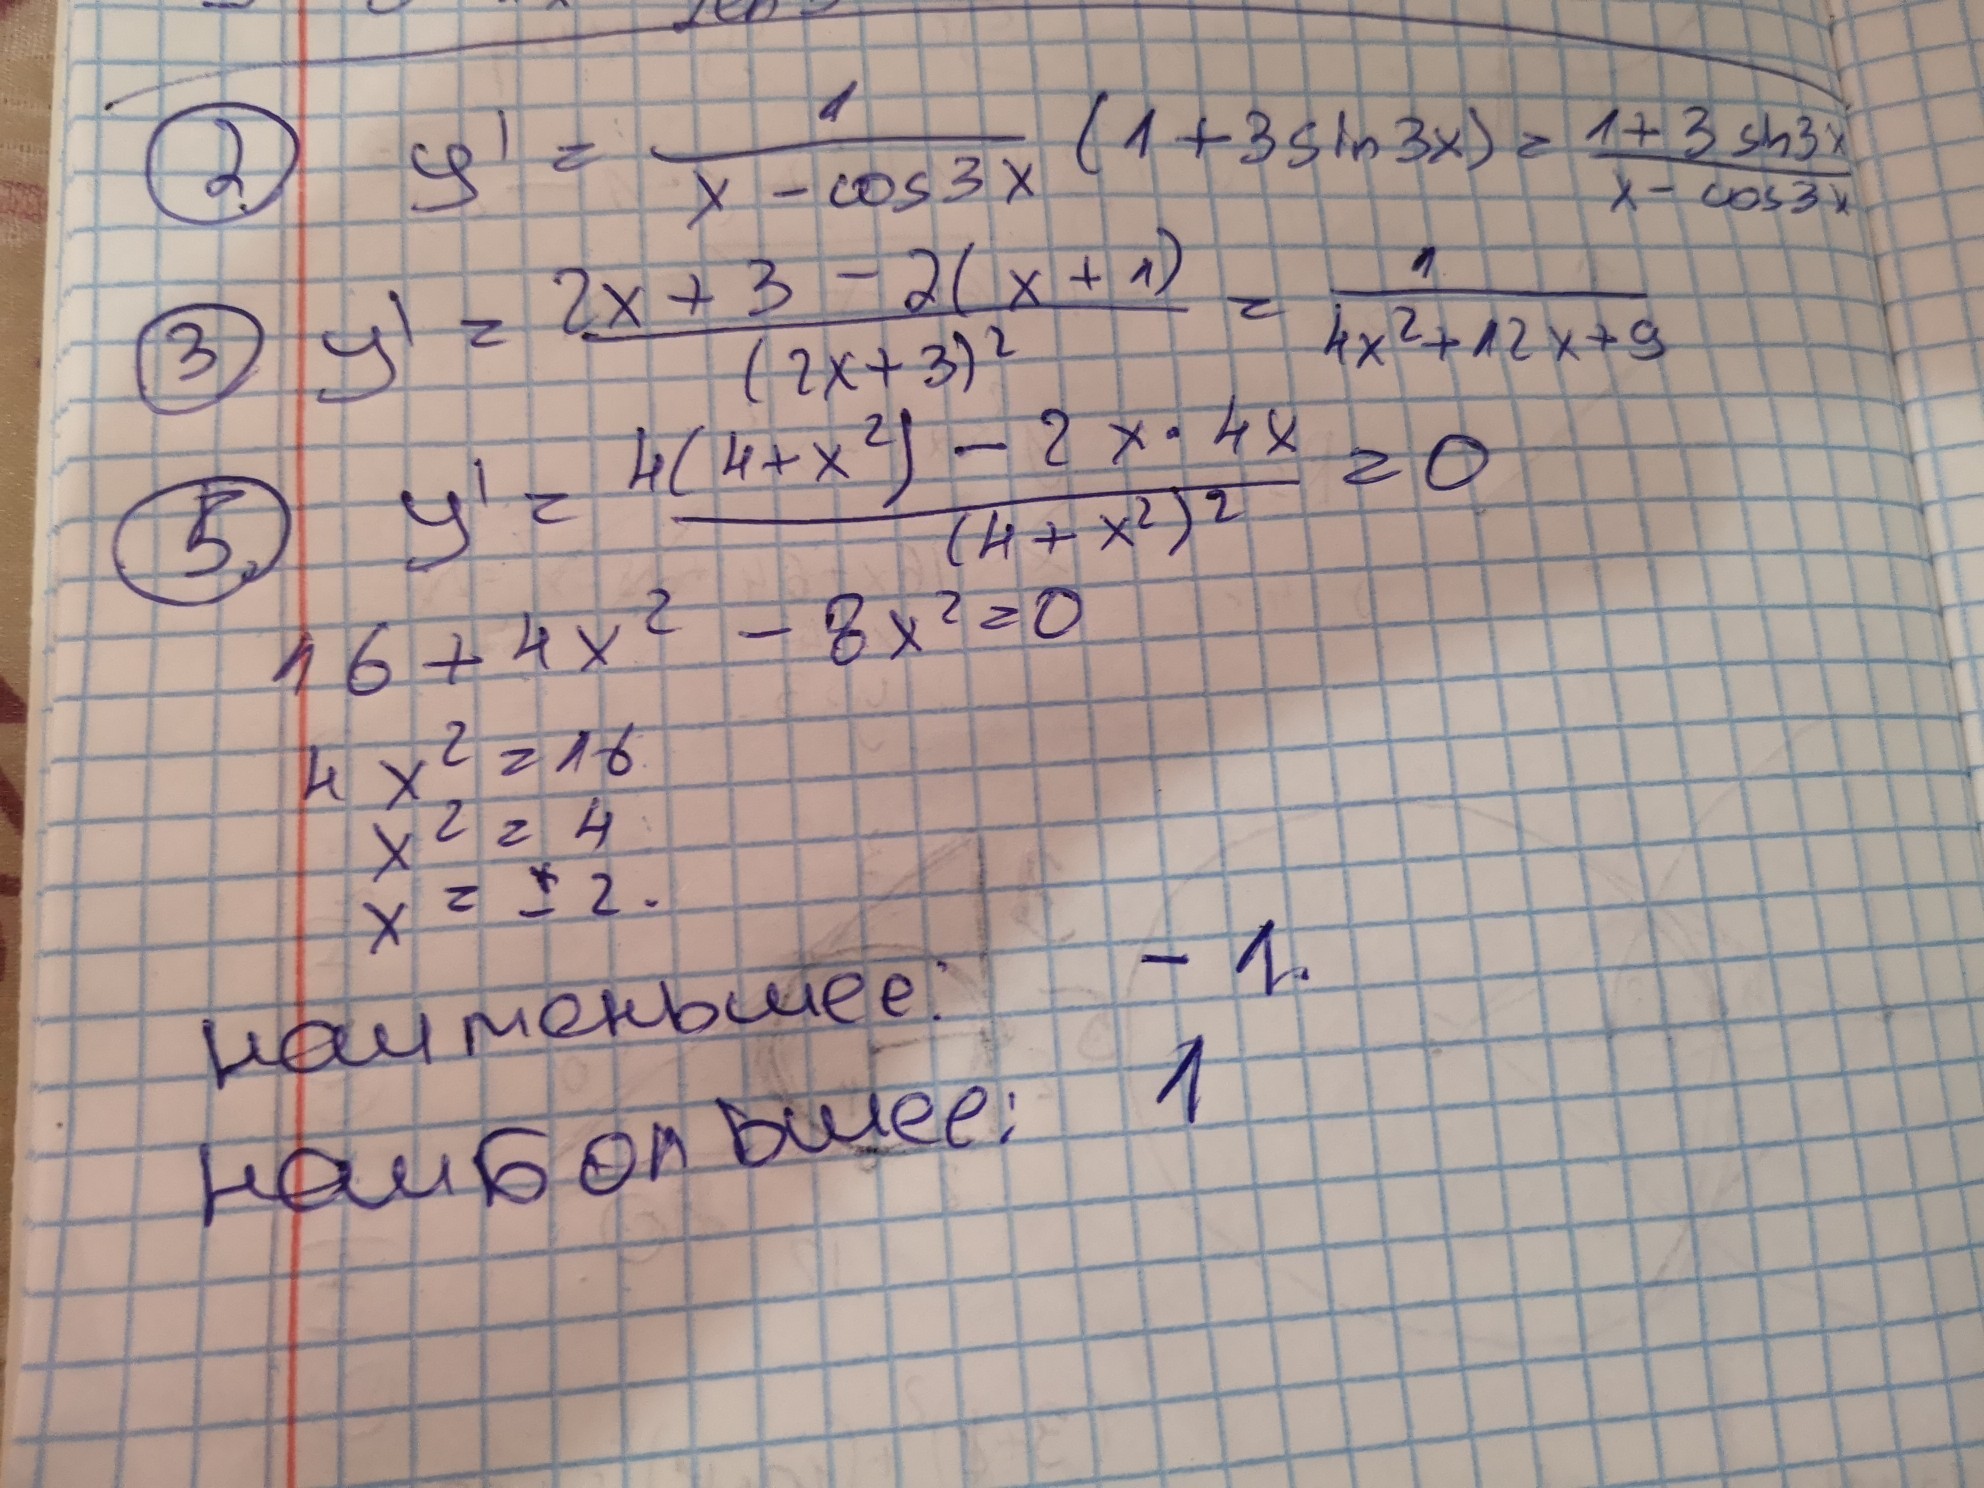 2. y' = 1/(x - cos3x) (1 + 3sin3x) = (1 + 3sin3x)/(x - cos3x)
3 y' = (2x + 3 - 2(x + 1))/(2x + 3)² = 1/(4x² + 12x + 9)
5. y' = (4(4 + x²) - 2x · 4x)/(4 + x²)² = 0
16 + 4x² - 8x² = 0
4x² = 16
x² = 4
x = ± 2.
наименьшее: - 1.
наибольшее: 1